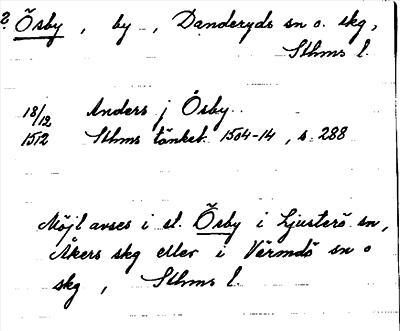 ? Ösby, by, Danderyds sn o. skg,
Sthms l.
18/12 Anders j Ösby
1512 Sthms tänkeb. 1504-14, s. 288
Möjl avses i st. Ösby i Ljusterö sn,
Åkers skg eller i Värmdö sn o
skg, Sthms l.